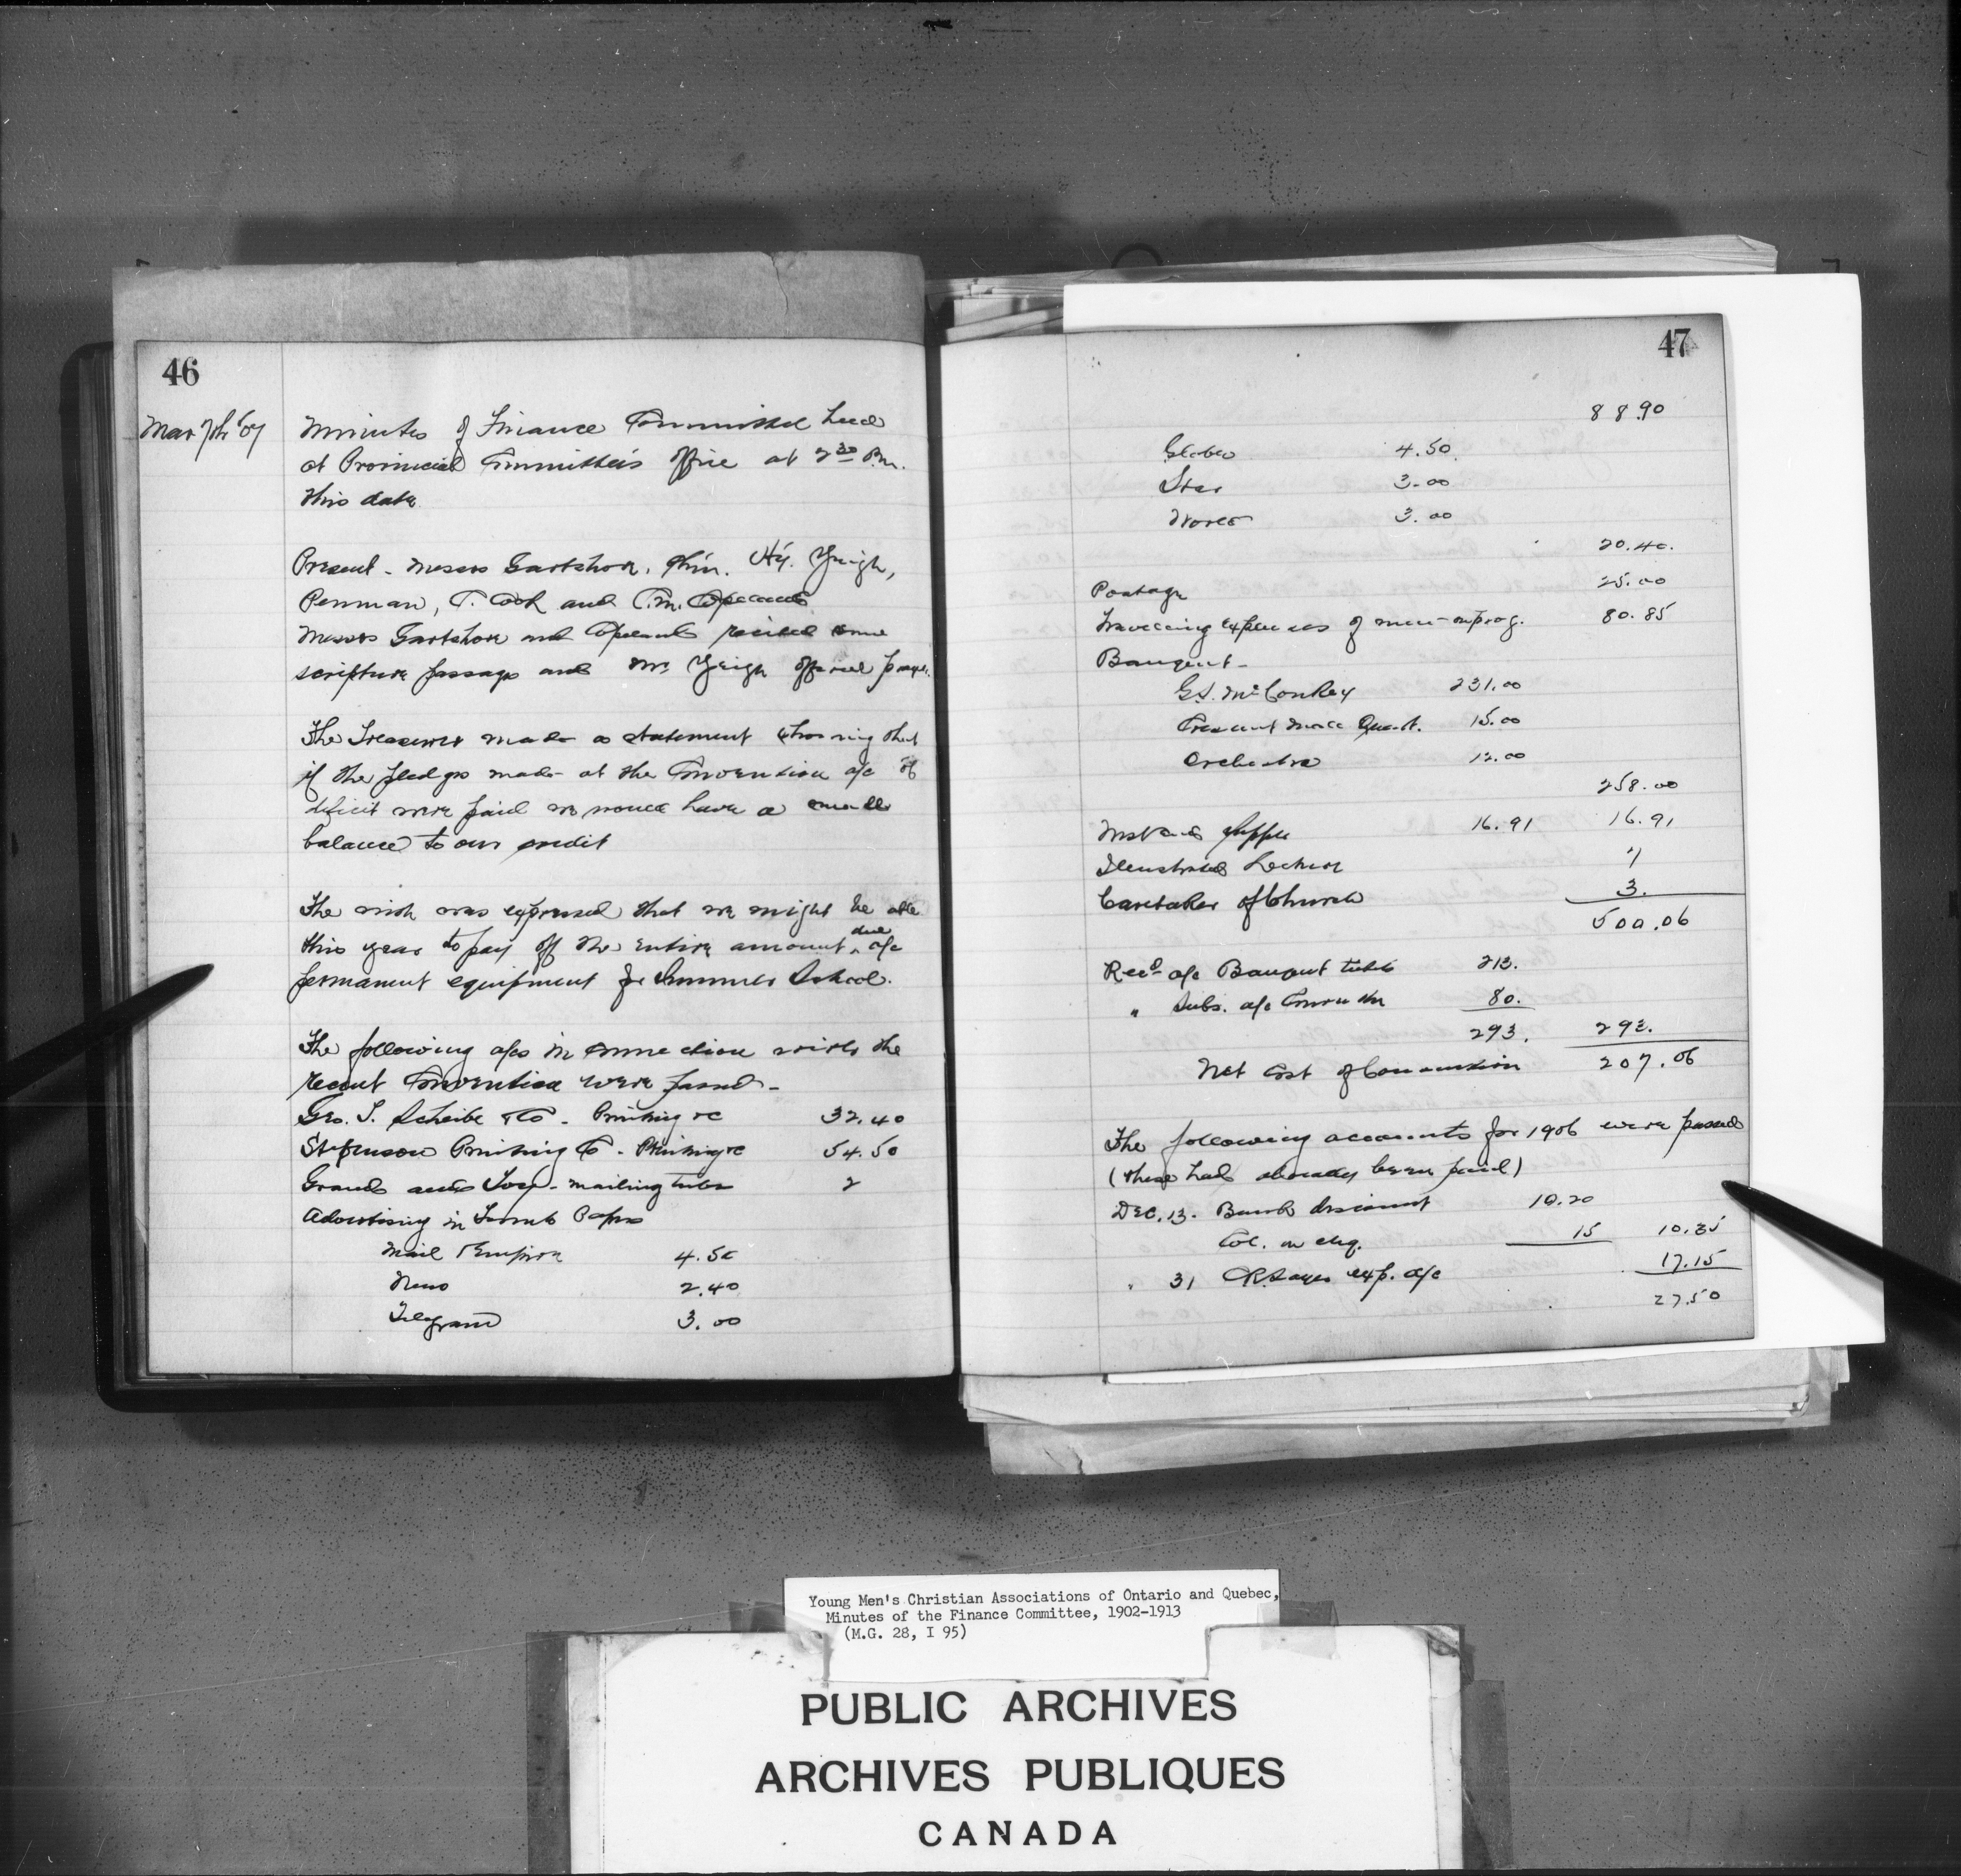 46
Mar 7th '07
Minutes of Finance Committee held
at Provincial Committee's office at 2 30 P.m.
this date
Present - Messrs Gartshore, Chn. Hy. Yeigh,
Penman, T. Cook and C.M. Copeland
Messrs Gartshore and Copeland recited some
scripture passages and Mr. Yeigh offered prayer.
The Treasurer made a statement showing that
if the pledges made at the Convention a/c of
deficit were paid we would have a small
balance to our credit
The wish was expressed that we might be able
this year to pay off the entire amount due a/c
permanent equipment for Summer School.
The following a/cs in connection with the
recent Convention were passed -
Geo. S. Scheibe & Co - Printing &c 32.40
Stephenson Printing Co - Printing &c 54.50
Grand and Toy - mailing tubes 2
Advertising in Toronto Papers
Mail & Empire 4.50
News 2.40
Telegram 3.00
47
88.90
Globe 4.50
Star 3.00
World 3.00
20.40
Postage 25.00
Travelling expenses of men on prog. 80.85
Banquet -
G.S. McConkey 231.00
Crescent Male Quart. 15.00
Orchestra 12.00
258.00
Supper 16.91 16.91
Illustrated Lecture 7
Caretaker of Church 3.
500.06
Recd a/c Banquet tickets 213.
" Subs. a/c Convention 80.
293. 293.
Net Cost of Convention 207.06
The following accounts for 1906 were passed
(these had already been paid)
Dec. 13. Bank discount 10.20
Col. on chq. 15 10.35
" 31 exp. a/c 17.15
27.50
Young Men's Christian Associations of Ontario and Quebec,
Minutes of the Finance Committee, 1902-1913
(M.G. 28, I 95)
PUBLIC ARCHIVES
ARCHIVES PUBLIQUES
CANADA